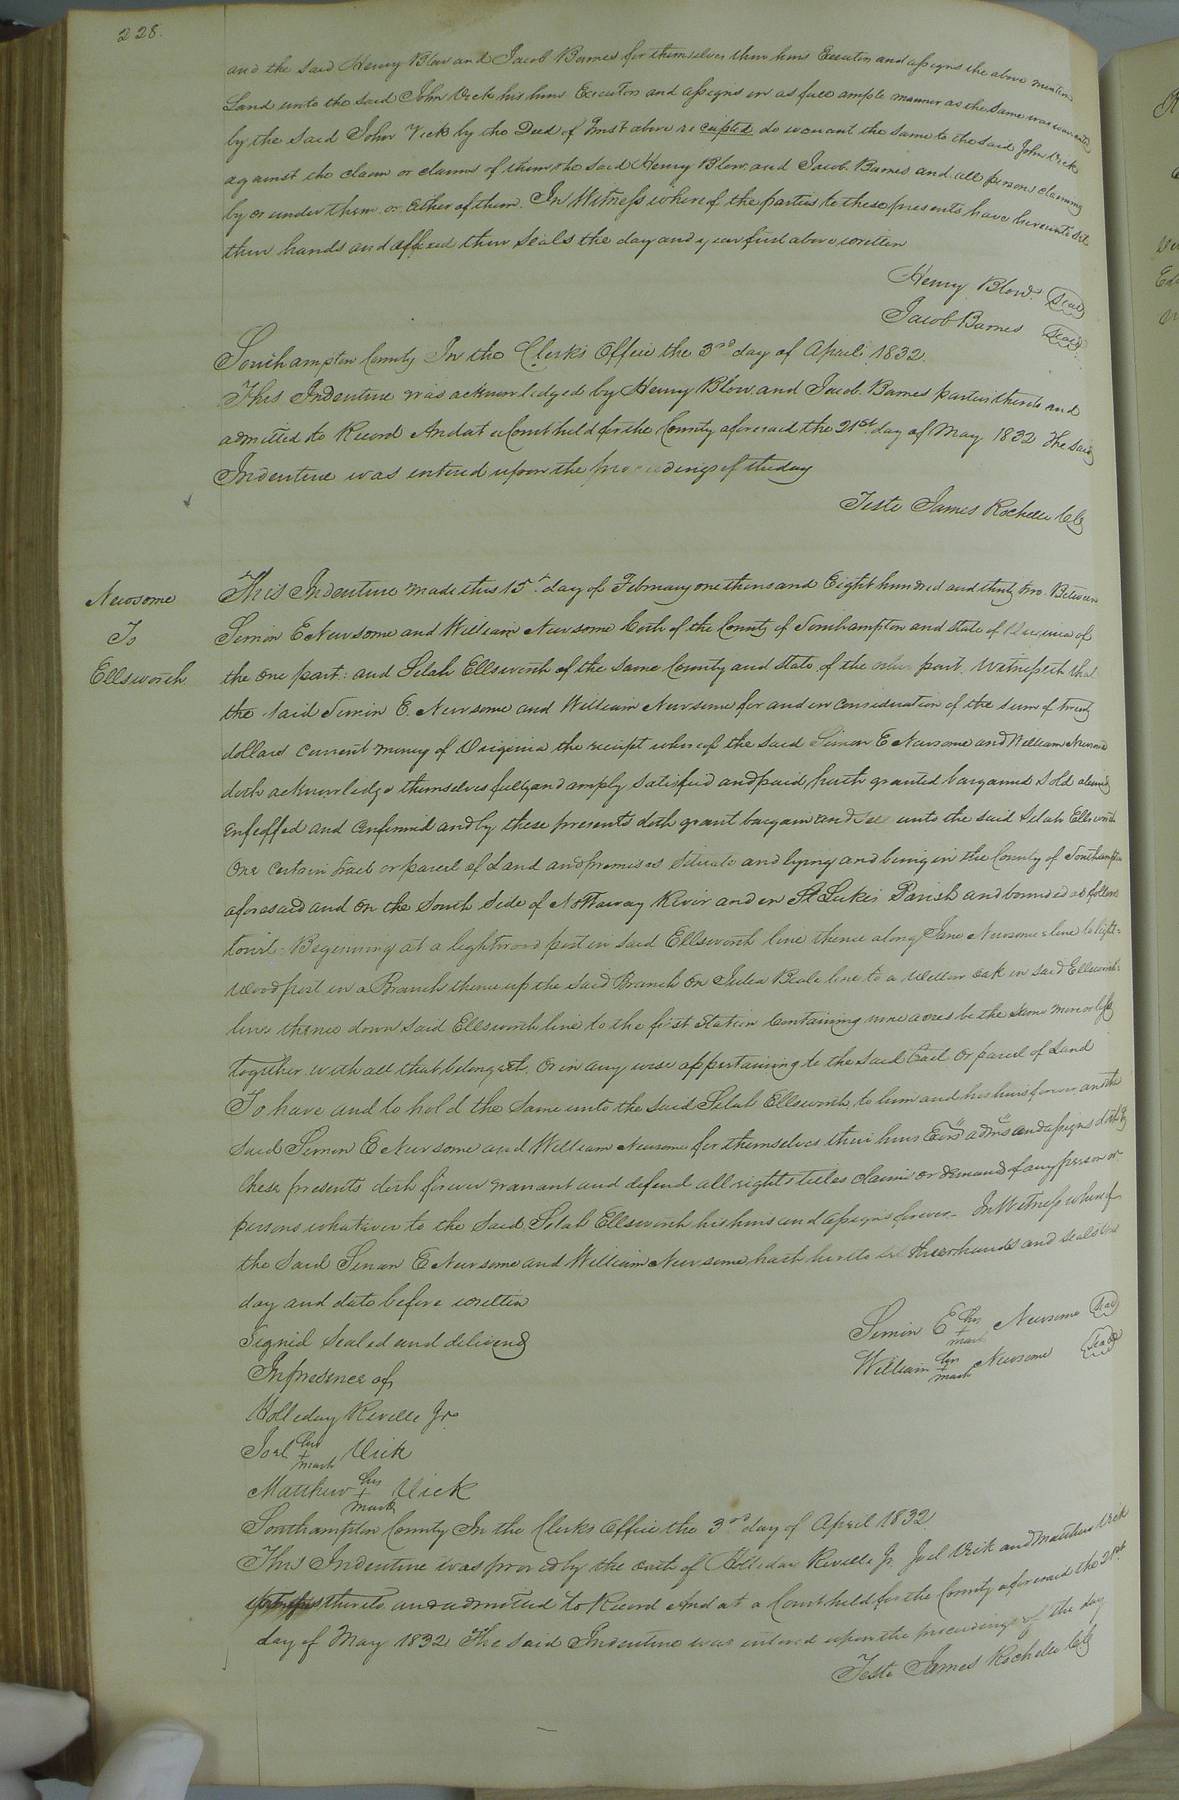 228.
and the said Henry Blow and Jacob Barnes for themselves their heirs Executors and assigns the above mention
Land unto the said John Vick his heirs Executors and assigns in as full ample manner as the same was
by the said John Vick by the Deed of Trust above recepted do warrant the same to the said John Vick
against the claim or claims of them the said Henry Blow and Jacob Barnes and all persons claiming
by or under them or Either of them. In Witness whereof the parties to these presents have hereunto set
their hands and affixed their Seals the day and year first above written
Henry Blow. Seal
Jacob Barnes Seal
Southampton County In the Clerks Office the 3rd day of April 1832.
This Indenture was acknowledged by Henry Blow and Jacob Barnes parties thereto and
admitted to Record And at a Court held for the County aforesaid the 21st day of May 1832 The Said
Indenture was entered upon the proceedings of the day
Teste James Rochelle Clk
Newsome
To
Ellsworth
This Indenture made this 15th day of February one thousand Eight hundred and thirty two. Between
Simon E Newsome and William Newsome both of the County of Southampton and state of Virginia of
the one part: and Selah Ellsworth of the same County and State of the other part. Witnesseth that
the said Simon E. Newsome and William Newsome for and in consideration of the sum of twenty
dollars current money of Virginia the receipt whereof the said Simon E Newsome and William Newsome
doth acknowledge themselves fully and amply satisfied and paid, hath granted bargained sold aliened
enfeoffed and confirmed and by these presents doth grant bargain and sell unto the said Selah Ellsworth
One certain tract or parcel of Land and premises situate and lying and being in the County of Southampton
aforesaid and On the South Side of Nottaway River and in St Lukes Parish and bounded as follows
towit. Beginning at a lightwood post in said Ellsworth line thence along Jane Newsomes line to light=
wood post in a Branch thence up the said Branch On Julia Beale line to a Willow oak in said Ellsworth
line thence down said Ellsworth line to the first Station Containing nine acres be the same more or less
together with all that belongeth, or in any wise appertaining to the said tract or parcel of Land
To have and to hold the Same unto the said Selah Ellsworth to him and his heirs forever and the
said Simon E Newsome and William Newsome for themselves their heirs Exrs adms and assigns doth by
these presents doth forever warrant and defend all rights titles claims or demand of any person or
persons whatever to the said Selah Ellsworth his heirs and assigns forever - In Witness whereof
the said Simon E Newsome and William Newsome hath hereto set their hands and seals the
day and date before written
Signed Sealed and delivered
In presence of
Simon E his + mark Newsome Seal
William his + mark Newsome Seal
Holleday Revelle Jr.
Joel his + mark Vick
Matthew his + mark Vick
Southampton County In the Clerks Office the 3rd day of April 1832
This Indenture was proved by the oath of Holleday Revelle Jr. Joel Vick and Matthew Vick
thereto and admitted to Record And at a Court held for the County aforesaid the 21st
day of May 1832 The said Indenture was entered upon the proceedings of the day
Teste James Rochelle Clk